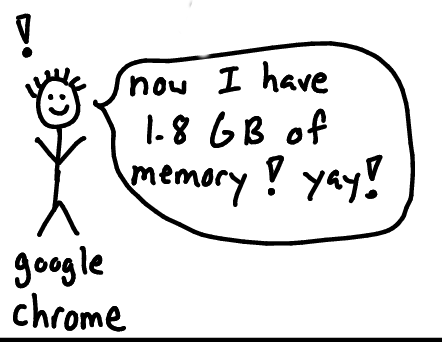 !
now I have
1.8 GB of
memory! yay!
google
chrome